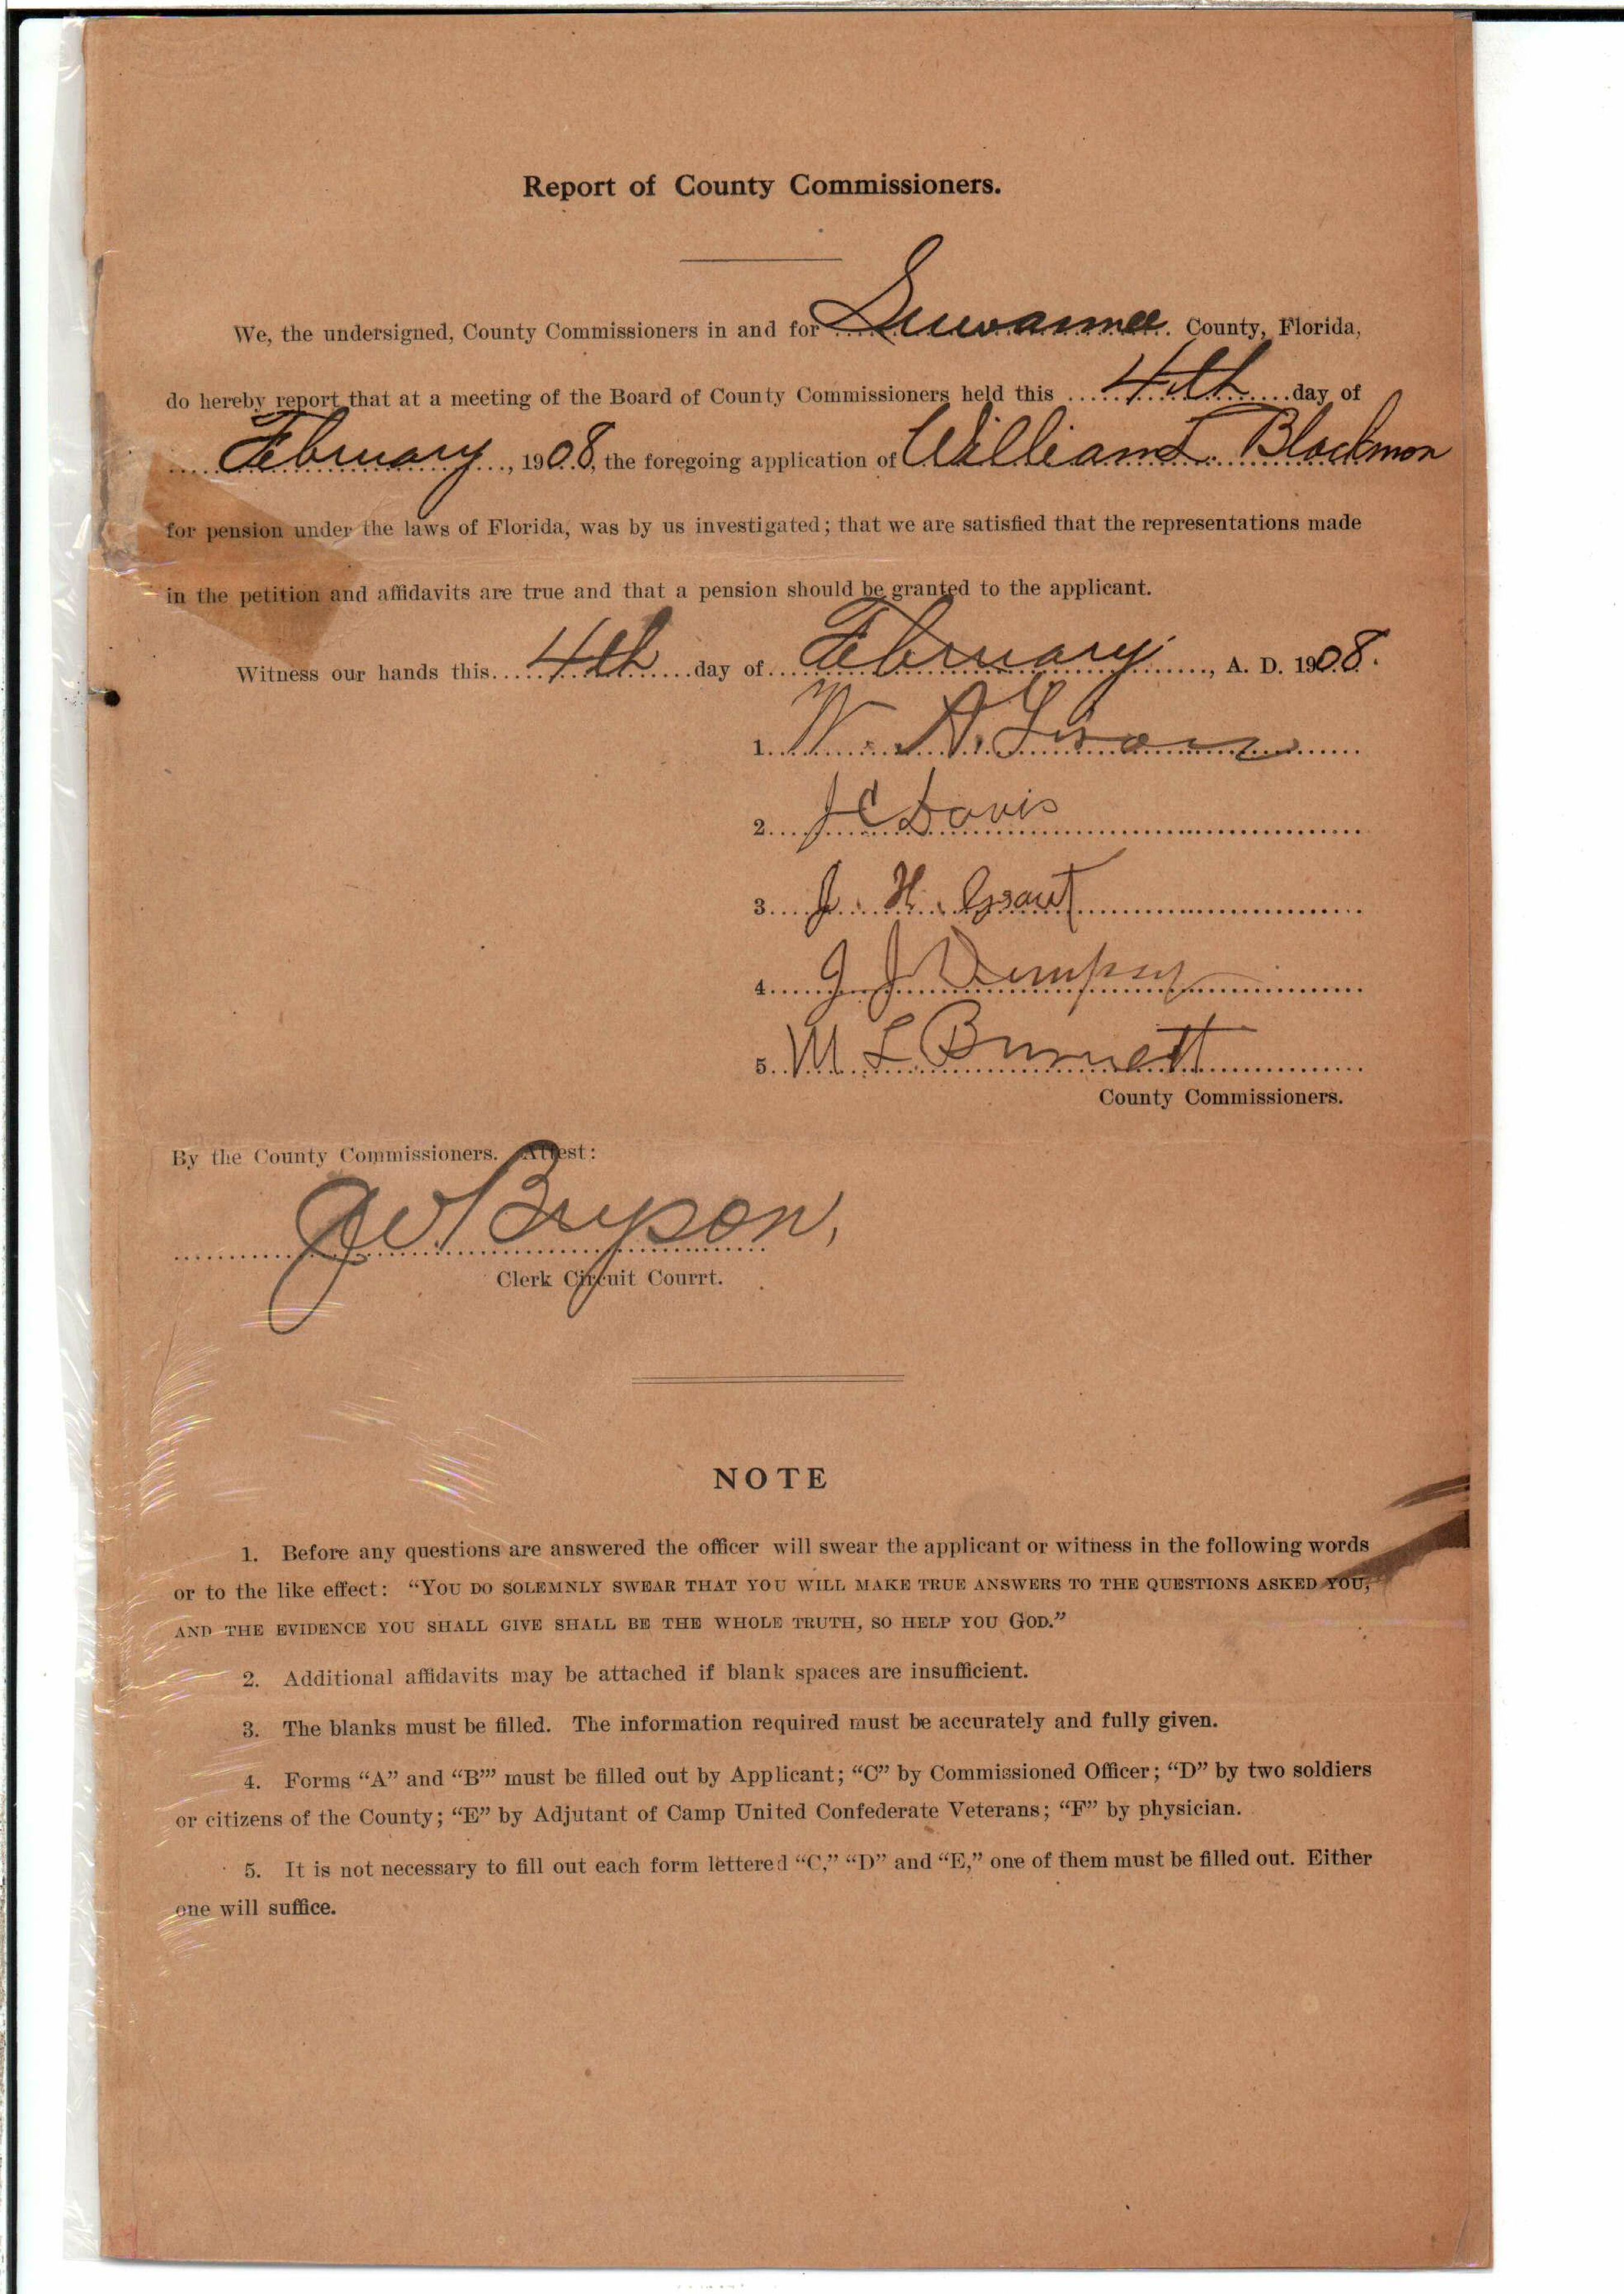 Report of County Commissioners.
We, the undersigned, County Commissioners in and for Suwannee County, Florida,
do hereby report that at a meeting of the Board of County Commissioners held this 4th day of
February, 1908, the foregoing application of William L. Blackmon
for pension under the laws of Florida, was by us investigated; that we are satisfied that the representations made
in the petition and affidavits are true and that a pension should be granted to the applicant.
Witness our hands this 4th day of February, A. D. 1908.
1. W. A.
2. J C Davis
3. J. H. Grant
4. J J Dempsey
5. M L Burnett
County Commissioners.
By the County Commissioners. Attest:
J W Bryson,
Clerk Circuit Courrt.
NOTE
1. Before any questions are answered the officer will swear the applicant or witness in the following words
or to the like effect: “YOU DO SOLEMNLY SWEAR THAT YOU WILL MAKE TRUE ANSWERS TO THE QUESTIONS ASKED YOU,
AND THE EVIDENCE YOU SHALL GIVE SHALL BE THE WHOLE TRUTH, SO HELP YOU GOD.”
2. Additional affidavits may be attached if blank spaces are insufficient.
3. The blanks must be filled. The information required must be accurately and fully given.
4. Forms “A” and “B”’ must be filled out by Applicant; “C” by Commissioned Officer; “D” by two soldiers
or citizens of the County; “E” by Adjutant of Camp United Confederate Veterans; “F” by physician.
5. It is not necessary to fill out each form lettered “C,” “D” and “E,” one of them must be filled out. Either
one will suffice.